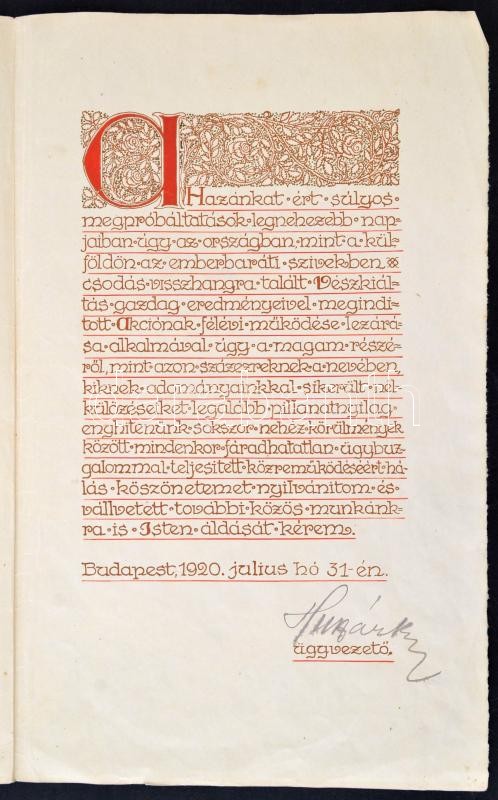 A
Hazánkat·ért·súlyos·
megpróbáltatások·legnehezebb·nap=
jaiban·úgy·az·országban,·mint·a·kül=
földön·az·emberbaráti·szivekben,
csodás·visszhangra·talált·Vészkiál=
tás·gazdag·eredményeivel·megindi=
tott·Akciónak·félévi·működése·lezárá=
sa·alkalmával·úgy·a·magam·részé=
ről,·mint·azon·százezreknek·a·nevében,
kiknek·adományainkkal·sikerült·nél=
külözéseiket·legalább·pillanatnyilag·
enyhitenünk·sokszor·nehéz·körülmények
között·mindenkor·fáradhatatlan·ügybuz=
galommal·teljesitett·közreműködéséért·há=
lás·köszönetemet·nyilvánitom·és·
vállvetett·további·közös·munkánk=
ra·is·Isten·áldását·kérem.
Budapest,1920.·július·hó·31-én.
ügyvezető.